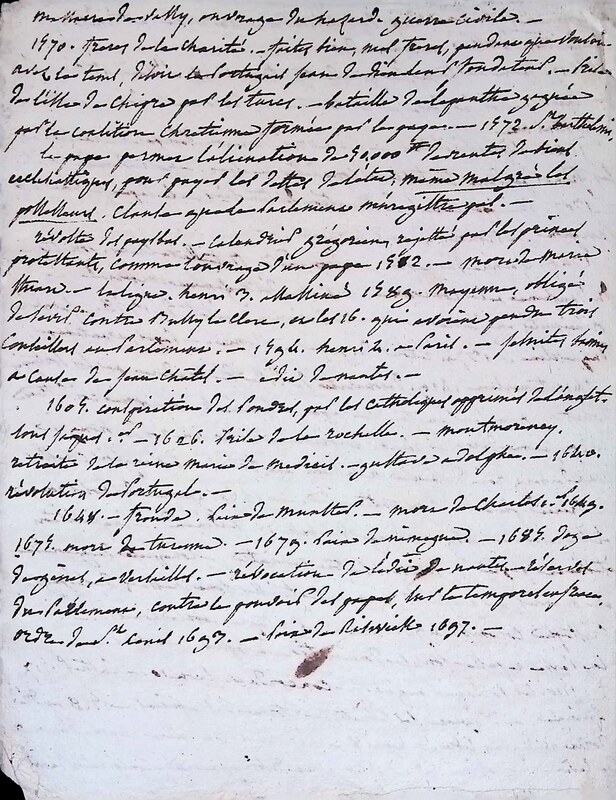 massacre de Vassy, ouvrage du hazard. guerre civile. —
1570. freres de la charité. — faites bien, mes freres, pendant que vous
avez le tems, disoit le Portugais jean de dieu leur fondateur. — Prise
de l'isle de Chipre par les turcs. — bataille de lépanthe gagnée
par la coalition Chretienne formée par le pape. — 1572. St. Barthelemi,
le pape permet l'aliénation de 50,000 tt de rentes de biens
ecclésiastiques, pour payer les dettes de l'état, même malgré les
possesseurs. Clause que le Parlement n'enregistre pas. —
révolte des pays bas. — Calendrier grégorien, rejetté par les princes
protestants, comme l'ouvrage d'un pape 1582. — mort de marie
Stuart. — la ligue. henri 3. assassiné 1589. mayenne, obligé
de sévir contre Bussy le Clerc, et les 16. qui avoient pendu trois
Conseillers au Parlement. — 1594. henri 4. à Paris. — jésuites bannis
a cause de jean Chatel. — édit de nantes. —
1605. conspiration des Poudres, par les Catholiques opprimés d'anglet.
sous jaques 1.er — 1628. Prise de la rochelle. — montmorency.
retraite de la reine marie de medicis. — gustave adolphe. — 1640.
révolution de Portugal. —
1648. — fronde. Paix de Munster. — mort de Charles 1.er 1649.
1675. mort de turenne. — 1679. Paix de nimegue. — 1685. doge
de gènes, à Versailles. — révocation de l'édit de nantes. —
du Parlement, contre le pouvoir des papes, sur le temporel en france.
ordre de St. Louis 1693. — Paix de Riswick 1697. —